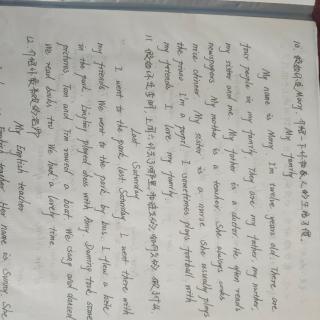 10. 假如你是Mary, 介绍一下你和家人的生活习惯。
My family
My name is Mary. I'm twelve years old. There are
four people in my family. They are my father, my mother,
my sister and me. My father is a doctor. He often reads
newspapers. My mother is a teacher. She always cooks
nice dinner. My sister is a nurse. She usually plays
the piano. I'm a pupil. I sometimes plays football with
my friends. I love my family.
11.
Last Saturday
I went to the park last Saturday. I went there with
my friends. We went to the park by bus. I flew a kite
in the park. Lingling played chess with Amy. Daming took some
pictures. Tom and Tim rowed a boat. We sang and danced.
We read books too. We had a lovely time.
12.
My English teacher
English teacher. Her name is Sunny. She